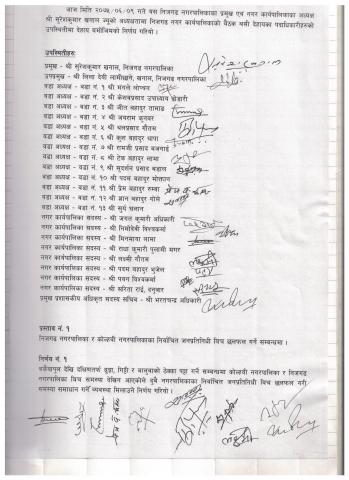 आज मिति २०७५/०६/०९ गते यस निजगढ नगरपालिकाका प्रमुख एवं नगर कार्यपालिकाका अध्यक्ष
श्री सुरेशकुमार खनाल ज्यूको अध्यक्षतामा निजगढ नगरपालिकाको बैठक बसी देहायका पदाधिकारीहरुको
उपस्थितीमा देहाय बमोजिमको निर्णय गरियो ।
उपस्थितीहरुः
प्रमुख - श्री सुरेशकुमार खनाल, निजगढ नगरपालिका
उपप्रमुख - श्री विष्ना देवी लामीछाने, खनाल, निजगढ नगरपालिका
वडा अध्यक्ष - वडा नं. १ श्री मंगले लोप्चन
वडा अध्यक्ष - वडा नं. २ श्री केशवप्रसाद उपाध्याय छेडारी
वडा अध्यक्ष - वडा नं. ३ श्री जीत बहादुर तामाङ
वडा अध्यक्ष - वडा नं. ४ श्री जयराम कुनवर
वडा अध्यक्ष - वडा नं. ५ श्री थलप्रसाद गौतम
वडा अध्यक्ष - वडा नं. ६ श्री कुश बहादुर थापा
वडा अध्यक्ष - वडा नं. ७ श्री रामजी प्रसाद बजगाई
वडा अध्यक्ष - वडा नं. ८ श्री टेक बहादुर लामा
वडा अध्यक्ष - वडा नं. ९ श्री सुदर्शन प्रसाद बडाल
वडा अध्यक्ष - वडा नं. १० श्री पदम बहादुर मोक्तान
वडा अध्यक्ष - वडा नं. ११ श्री प्रेम बहादुर रुम्बा
वडा अध्यक्ष - वडा नं. १२ श्री ज्ञान बहादुर गोले
वडा अध्यक्ष - वडा नं. १३ श्री सुर्य चलान
नगर कार्यपालिका सदस्य - श्री जनत कुमारी अधिकारी
नगर कार्यपालिका सदस्य - श्री निर्मादेवी विश्वकर्मा
नगर कार्यपालिका सदस्य - श्री मिनमाया लामा
नगर कार्यपालिका सदस्य - श्री राधा कुमारी पुलामी मगर
नगर कार्यपालिका सदस्य - श्री लक्ष्मी गौतम
नगर कार्यपालिका सदस्य - श्री पदम बहादुर भुजेल
नगर कार्यपालिका सदस्य - श्री पवन विश्वकर्मा
नगर कार्यपालिका सदस्य - श्री सरिता राई, दनुवार
प्रमुख प्रशासकीय अधिकृत सदस्य सचिव - श्री भरतचन्द्र अधिकारी
प्रस्ताव नं. १
निजगढ नगरपालिका र कोल्हवी नगरपालिकाका निर्वाचित जनप्रतिनिधी बिच छलफल गर्ने सम्बन्धमा ।
निर्णय नं. १
बकैयापुल देखि दक्षिणतर्फ ढुङ्गा, गिट्टी र बालुवाको ठेक्का पट्टा गर्ने सम्बन्धमा कोल्हवी नगरपालिका र निजगढ
नगरपालिका बिच समस्या देखिन आएकोले दुबै नगरपालिकाका निर्वाचित जनप्रतिनिधी बिच छलफल गरी
समस्या समाधान गर्ने व्यवस्था मिलाउने निर्णय गरियो ।